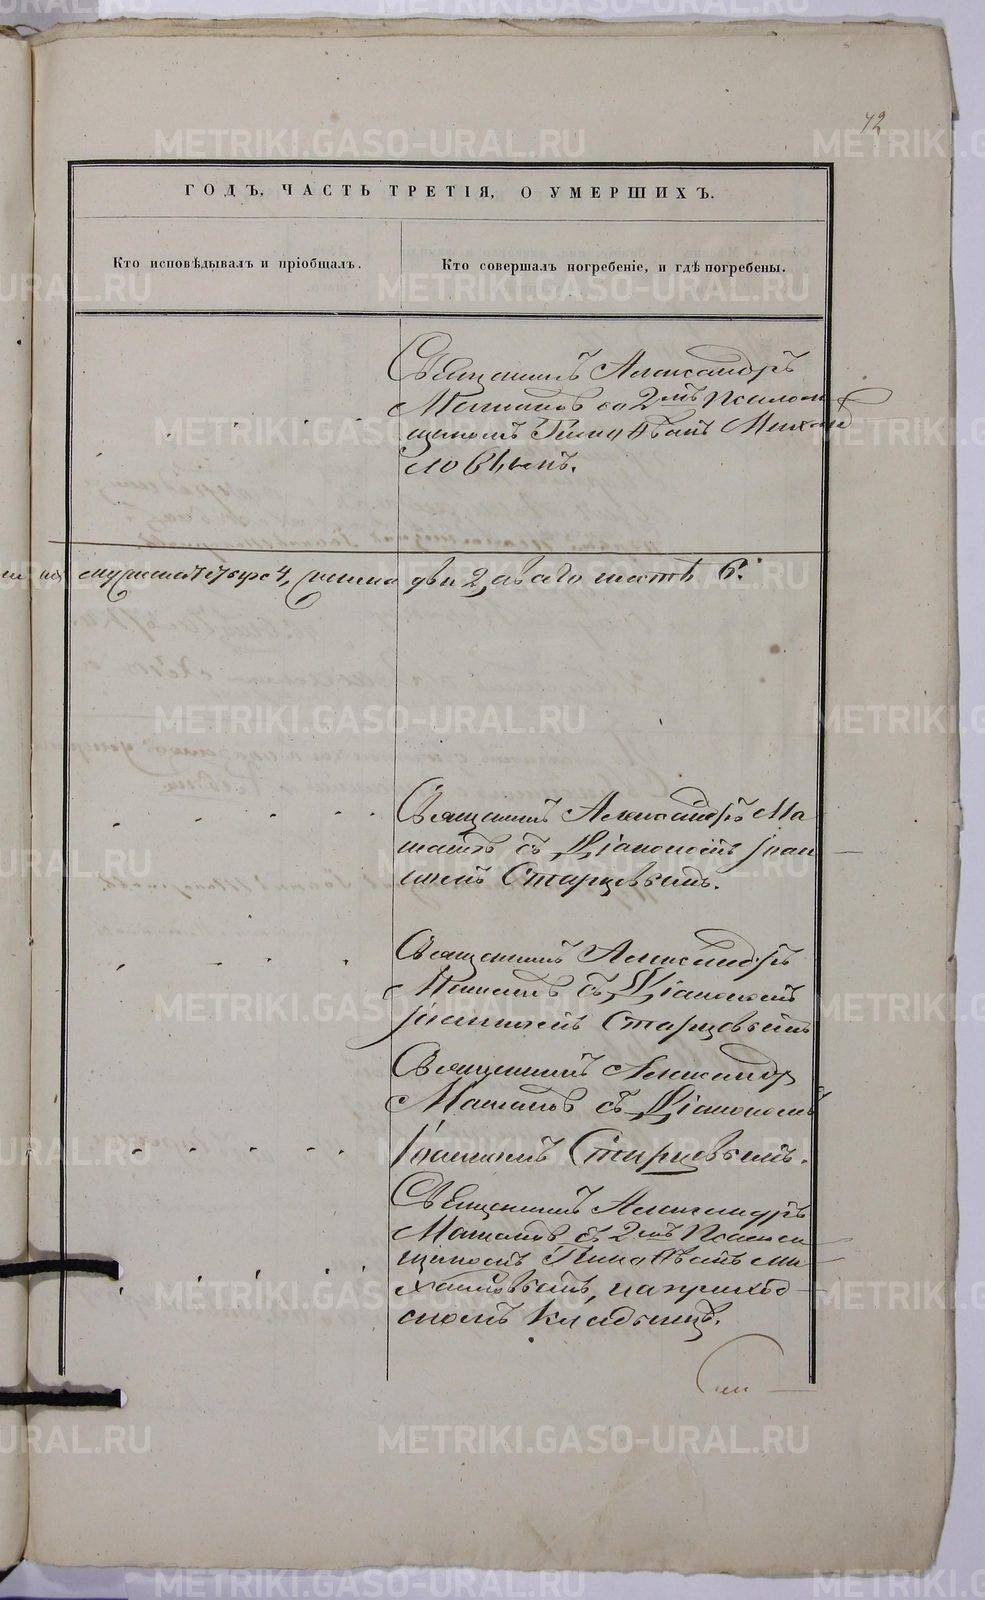 METRIKI.GASO-URAL.RU
72
ГОДЪ, ЧАСТЬ ТРЕТІЯ, О УМЕРШИХЪ.
Кто исповѣдывалъ и пріобщалъ.
Кто совершалъ погребеніе, и гдѣ погребены.
Священникъ Александръ
со 2мъ Псалом
щикомъ Михаи
ловымъ.
четыре 4, два 2, а всего шесть 6.
Священникъ Александръ Ма
съ Діакономъ Іоан
номъ Старцевымъ.
Священникъ Александръ
съ Діакономъ
Іоанномъ Старцевымъ
Священникъ Александръ
съ Діакономъ
Іоанномъ Старцевымъ.
Священникъ Александръ
съ 2мъ Псалом
щикомъ Ми
хайловымъ, на приход
скомъ кладбищѣ.